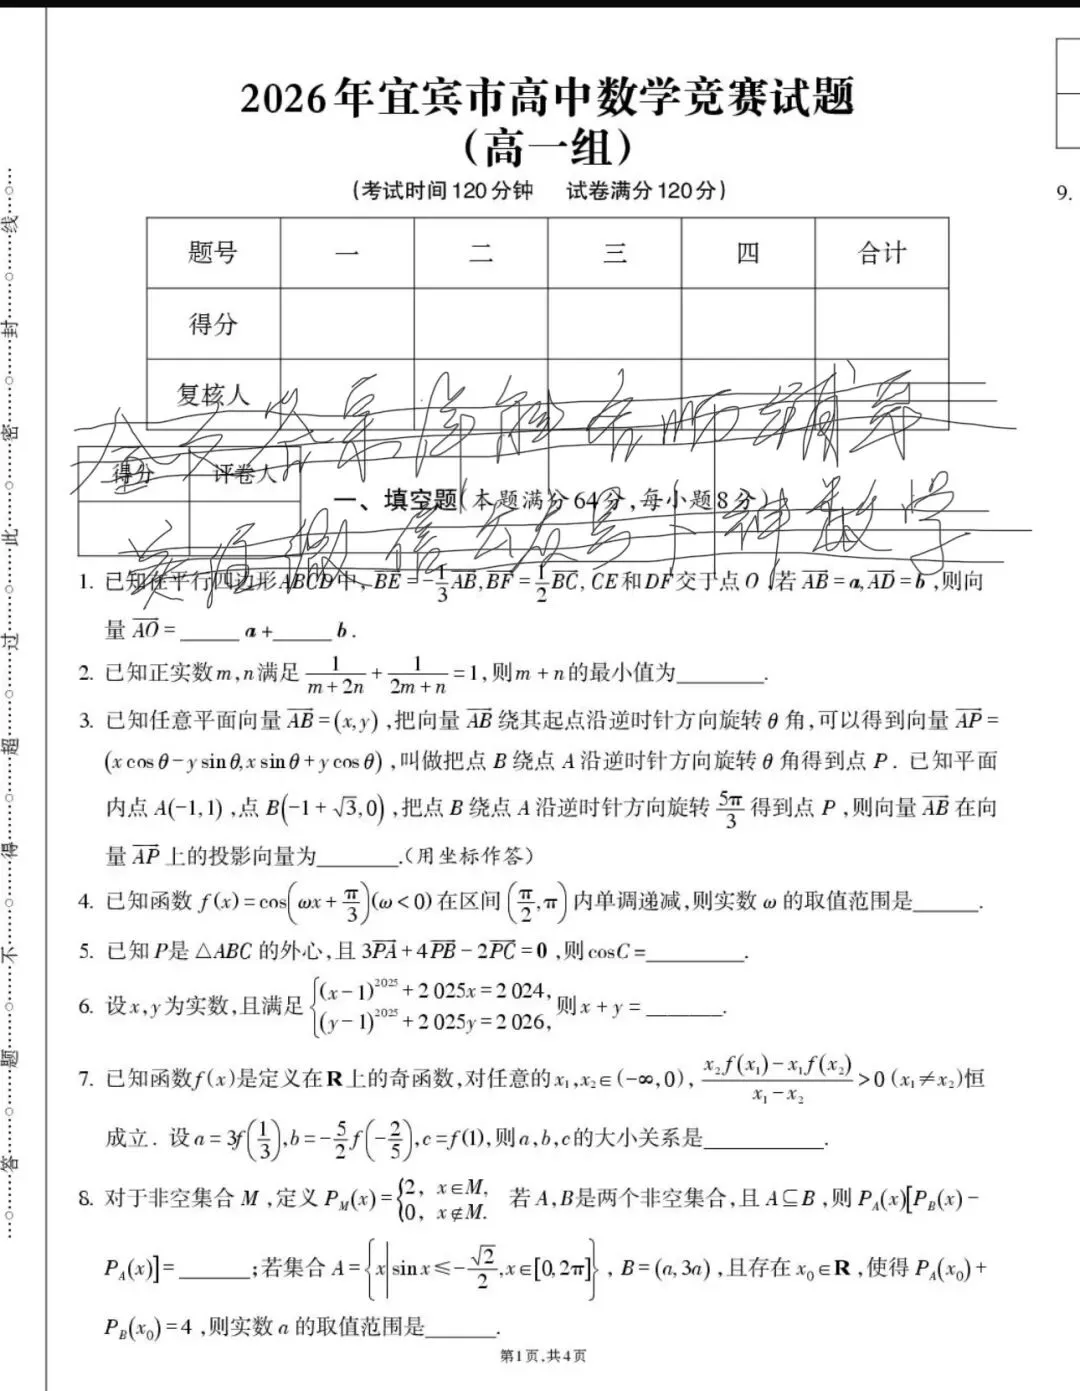 2026年宜宾市高中数学竞赛试题
(高一组)
(考试时间120分钟 试卷满分120分)
题号 一 二 三 四 合计
得分
复核人
得分 评卷人
一、填空题(本题满分64分,每小题8分)
1. 已知在平行四边形ABCD中,BE=-1/3AB,BF=1/2BC,CE和DF交于点O,若AB=a,AD=b,则向
量AO=______a+______b.
2. 已知正实数m,n满足1/(m+2n)+1/(2m+n)=1,则m+n的最小值为________.
3. 已知任意平面向量AB=(x,y),把向量AB绕其起点沿逆时针方向旋转θ角,可以得到向量AP=
(xcosθ-ysinθ,xsinθ+ycosθ),叫做把点B绕点A沿逆时针方向旋转θ角得到点P.已知平面
内点A(-1,1),点B(-1+√3,0),把点B绕点A沿逆时针方向旋转5π/3得到点P,则向量AB在向
量AP上的投影向量为________.(用坐标作答)
4. 已知函数f(x)=cos(ωx+π/3)(ω<0)在区间(π/2,π)内单调递减,则实数ω的取值范围是______.
5. 已知P是△ABC的外心,且3PA+4PB-2PC=0,则cosC=_________.
6. 设x,y为实数,且满足{(x-1)^2025+2025x=2024,(y-1)^2025+2025y=2026,则x+y=_______.
7. 已知函数f(x)是定义在R上的奇函数,对任意的x₁,x₂∈(-∞,0),(x₂f(x₁)-x₁f(x₂))/(x₁-x₂)>0(x₁≠x₂)恒
成立.设a=3f(1/3),b=-5/2f(-2/5),c=f(1),则a,b,c的大小关系是___________.
8. 对于非空集合M,定义P_M(x)={2,x∈M,0,x∉M.若A,B是两个非空集合,且A⊆B,则P_A(x)[P_B(x)-
P_A(x)]=_______;若集合A={x|sinx≤-√2/2,x∈[0,2π]},B=(a,3a),且存在x₀∈R,使得P_A(x₀)+
P_B(x₀)=4,则实数a的取值范围是_______.
第1页,共4页
9.
答题不得超过此密封线